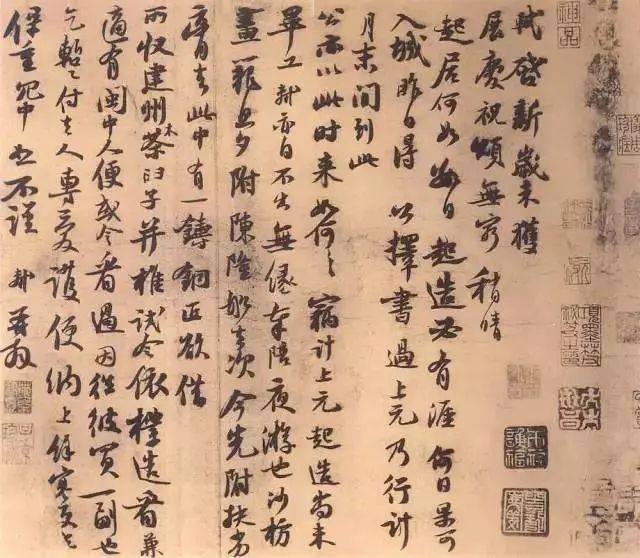 軾啓新歲未獲
展慶祝頌無窮稍晴
起居何如數日起造必有涯何日果可
入城昨日得公擇書過上元乃行計
月末間到此
公亦以此時來如何々竊計上元起造尚未
畢工軾亦自不出無緣奉陪夜游也沙枋
畫籠旦夕附陳隆船去次今先附扶劣
膏去此中有一鑄銅匠欲借
所收建州木茶臼子并椎試令依樣造看兼
適有閩中人便或令看過因往彼買一副也
乞蹔付去人專愛護便納上餘寒更乞
保重冗中恕不謹軾再拜
神品